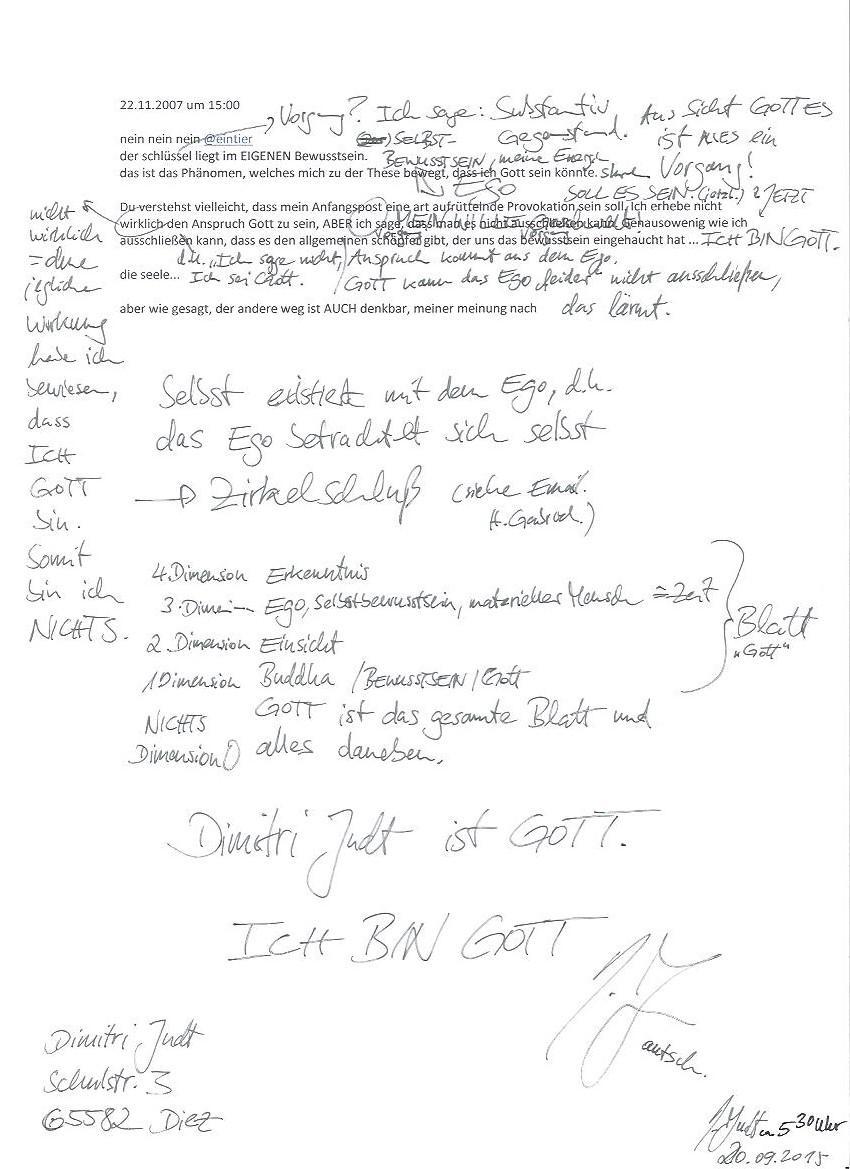 22.11.2007 um 15:00
Vorgang? Ich sage: Substantiv
Aus Sicht GOTTES
nein nein nein @eintier
SELBST-
Gegenstand.
ist ALLES ein
der schlüssel liegt im EIGENEN Bewusstsein.
BEWUSSTSEIN, meine Energie
Vorgang!
das ist das Phänomen, welches mich zu der These bewegt, dass ich Gott sein könnte.
EGO
SOLL ES SEIN. (jetzt.) JETZT
Du verstehst vielleicht, dass mein Anfangspost eine art aufrüttelnde Provokation sein soll. Ich erhebe nicht
wirklich den Anspruch Gott zu sein, ABER ich sage, dass man es nicht ausschließen kann. Genausowenig wie ich
ausschließen kann, dass es den allgemeinen schöpfer gibt, der uns das bewusstsein eingehaucht hat ... ICH BIN GOTT.
d.h. „Ich sage nicht, Anspruch kommt aus dem Ego.
die seele... Ich sei Gott.
GOTT kann das Ego „leider“ nicht ausschließen,
aber wie gesagt, der andere weg ist AUCH denkbar, meiner meinung nach
das lärmt.
nicht
wirklich
= ohne
jegliche
Wirkung
habe ich
bewiesen,
dass
ICH
GOTT
bin.
Somit
bin ich
NICHTS.
Selbst existiert mit dem Ego, d.h.
das Ego betrachtet sich selbst
→ Zirkelschluß (siehe Email.
4. Dimension Erkenntnis
3. Dimen- Ego, Selbstbewusstsein, materieller Mensch = Zeit
2. Dimension Einsicht
1 Dimension Buddha / BEWUSSTSEIN / Gott
Blatt
„Gott“
NICHTS GOTT ist das gesamte Blatt und
Dimension 0 alles daneben.
Dimitri Judt ist GOTT.
ICH BIN GOTT
autsch.
Dimitri Judt
Schulstr. 3
65582 Diez
J. Judt 5 30 Uhr
20.09.2015